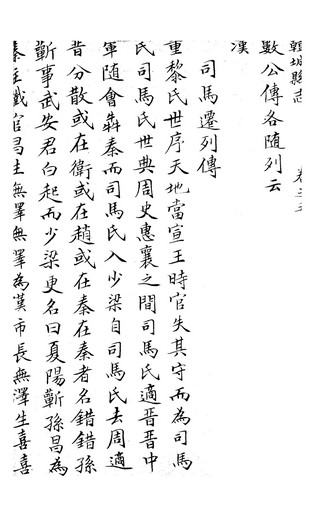 韓城縣志
數公傳各隨列云
漢
司馬遷列傳
重黎氏世序天地當宣王時官失其守而為司馬
氏司馬氏世典周史惠襄之間司馬氏適晉晉中
軍隨會犇秦而司馬氏入少梁自司馬氏去周適
晉分散或在衛或在趙或在秦在秦者名錯錯孫
蘄事武安君白起而少梁更名曰夏陽蘄孫昌為
秦主鐵官昌生無睪無睪為漢市長無澤生喜喜